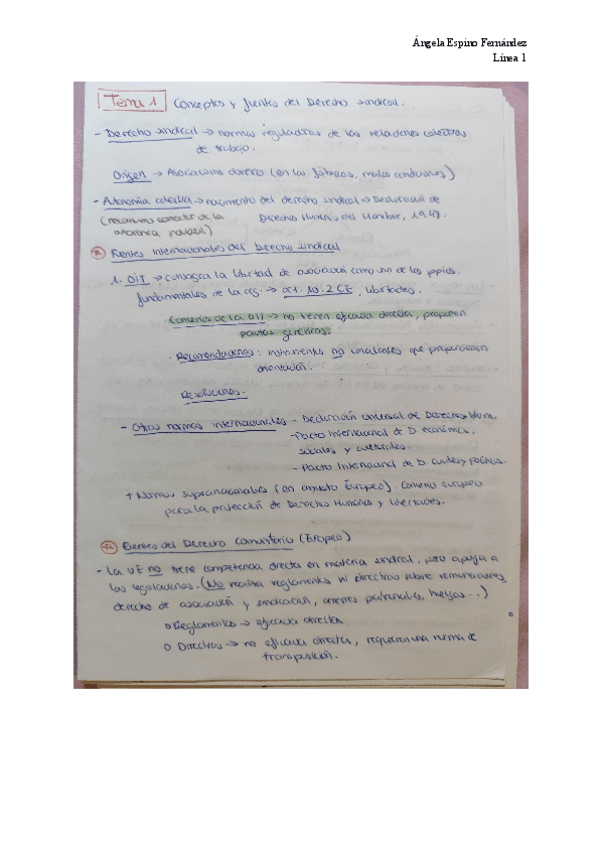 Ángela Espino Fernández
Línea 1
Tema 1 Conceptos y fuentes del Derecho sindical.
- Derecho sindical → normas reguladoras de las relaciones colectivas
de trabajo.
Origen → Asociacionismo obrero (en las fábricas, malas condiciones)
- Autonomía colectiva → nacimiento del derecho sindical → Declaración de
(mecanismo corrector de la Derechos Humanos del Hombre, 1948.
autonomía individual)
Fuentes Internacionales del Derecho sindical
1. OIT → consagra la libertad de asociación como uno de los ppios.
fundamentales de la org. → art. 10.2 CE, libertades.
Convenios de la OIT → no tienen eficacia directa, proponen
pautas genéricas.
. Recomendaciones: instrumentos no vinculantes que proporcionan
orientación.
Resoluciones.
- Otras normas internacionales - Declaración Universal de Derechos Hum.
- Pacto Internacional de D. económicos,
sociales y culturales.
- Pacto Internacional de D. civiles y políticos.
+ Normas supranacionales (en ámbito Europeo). Convenio europeo
para la protección de Derechos Humanos y libertades.
Fuentes del Derecho Comunitario (Europeo)
- La UE no tiene competencia directa en materia sindical, pero apoya a
las legislaciones. (No realiza reglamentos ni directivas sobre remuneraciones,
derecho de asociación y sindicación, cierres patronales, huelgas...)
o Reglamentos → eficacia directa
o Directivas → no eficacia directa, requieren una norma de
transposición.